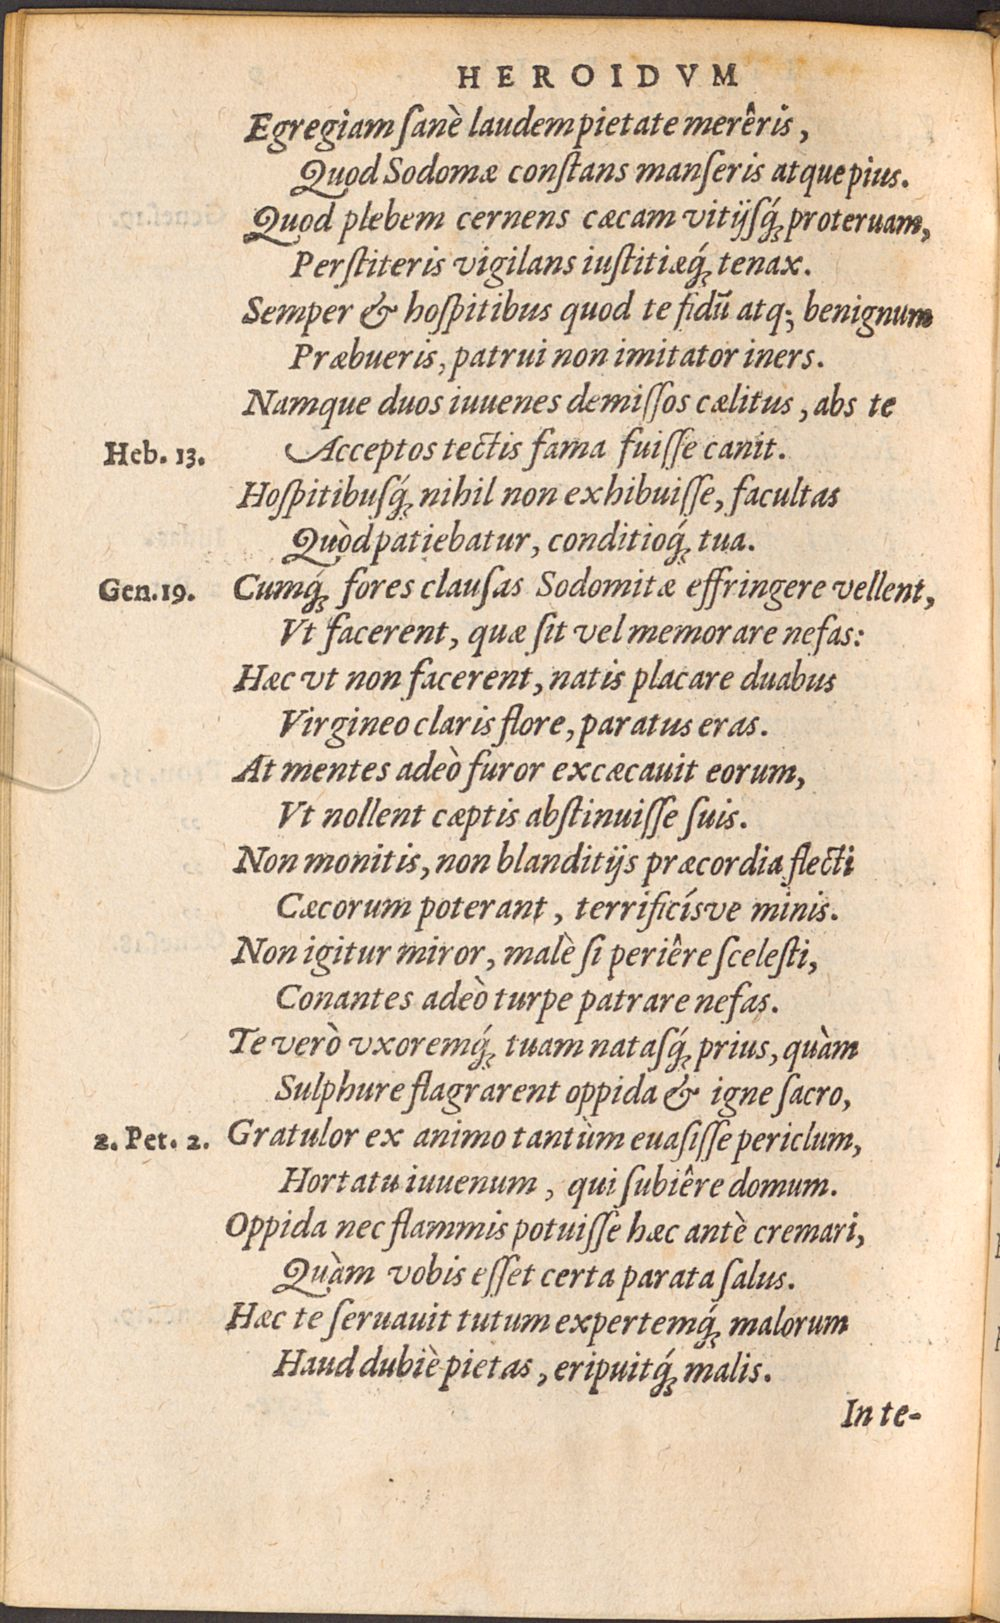 HEROIDVM
Egregiam ſanè laudem pietate merêris,
Quod Sodomæ conſtans manſeris atque pius.
Quod plebem cernens cæcam vitijsq́; proteruam,
Perſtiteris vigilans iuſtitiæq́; tenax.
Semper & hoſpitibus quod te fidũ atq; benignum
Præbueris, patrui non imitator iners.
Namque duos iuuenes demiſſos cælitus, abs te
Heb. 13. Acceptos tectis fama fuiſſe canit.
Hoſpitibuſq́; nihil non exhibuiſſe, facultas
Quòd patiebatur, conditioq́; tua.
Gen. 19. Cumq́; fores clauſas Sodomitæ effringere vellent,
Vt facerent, quæ ſit vel memorare nefas:
Hæc vt non facerent, natis placare duabus
Virgineo claris flore, paratus eras.
At mentes adeò furor excæcauit eorum,
Vt nollent cæptis abſtinuiſſe ſuis.
Non monitis, non blanditijs præcordia flecti
Cæcorum poterant, terrificísve minis.
Non igitur miror, malè ſi periêre ſceleſti,
Conantes adeò turpe patrare nefas.
Te verò vxoremq́; tuam nataſq́; prius, quàm
Sulphure flagrarent oppida & igne ſacro,
2. Pet. 2. Gratulor ex animo tantùm euaſiſſe periclum,
Hortatu iuuenum, qui ſubiêre domum.
Oppida nec flammis potuiſſe hæc antè cremari,
Quàm vobis eſſet certa parata ſalus.
Hæc te ſeruauit tutum expertemq́; malorum
Haud dubiè pietas, eripuitq́; malis.
In te-